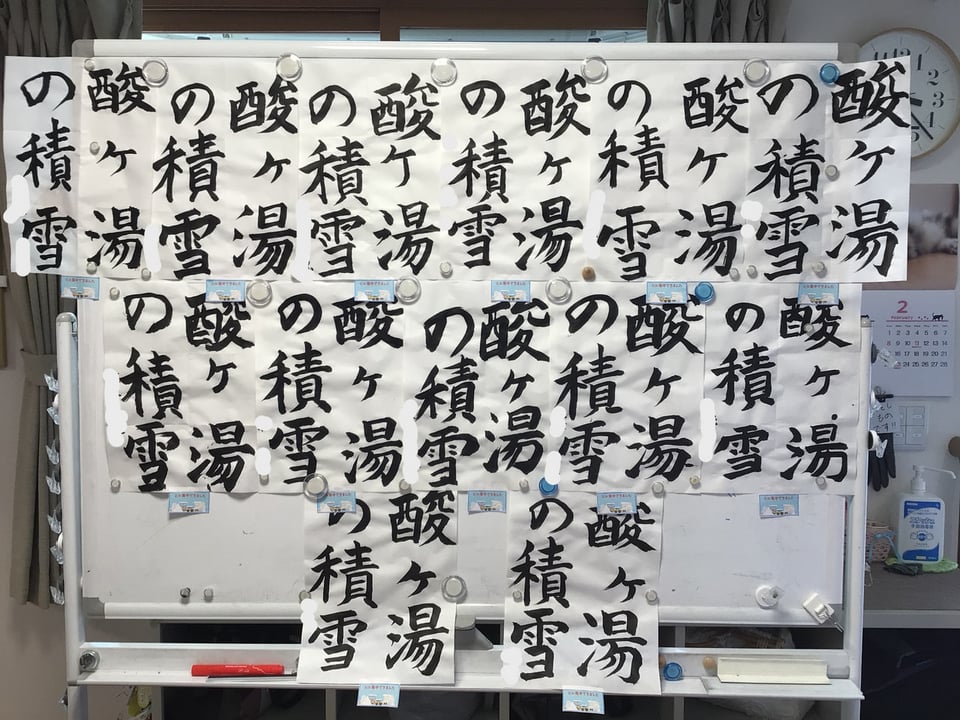 酸ケ湯
の積雪
酸ケ湯
の積雪
酸ケ湯
の積雪
酸ケ湯
の積雪
酸ケ湯
の積雪
酸ケ湯
の積雪
酸ケ湯
の積雪
酸ケ湯
の積雪
酸ケ湯
の積雪
酸ケ湯
の積雪
酸ケ湯
の積雪
酸ケ湯
の積雪
酸ケ湯
の積雪
2
February